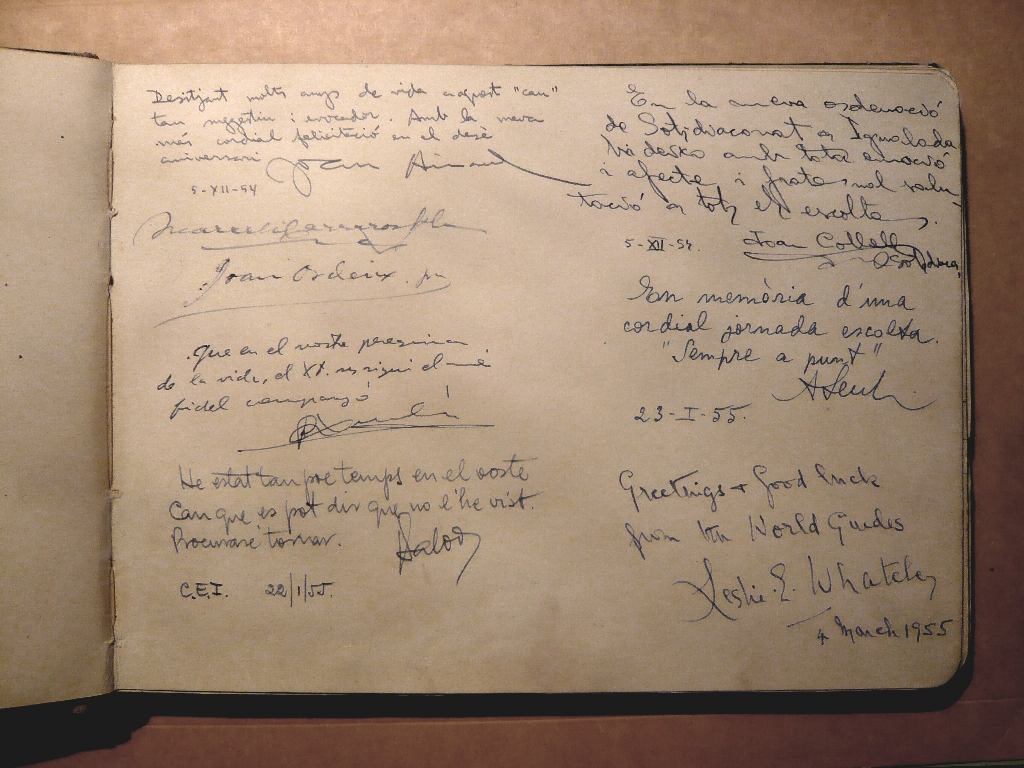 Desitjant molts anys de vida aquest "cau"
tan suggestiu i evocador. Amb la meva
més cordial felicitació en el desè
aniversari Joan Ainaud
5-XII-54
Joan Ordeix
Que en el vostre
de la vida, el XT. us sigui el més
fidel company
He estat tan poc temps en el vostre
Cau que es pot dir que no l'he vist.
Procuraré tornar.
C.E.I. 22/1/55.
En la meva ordenació
de Sotsdiaconat a Igualada
amb tota emoció
i afecte i fraternal salu-
tació a tots els escoltes.
5-XII-54. Joan Collell
Sotsdiaca
En memòria d'una
cordial jornada escolta.
"Sempre a punt"
23-I-55.
Greetings + Good luck
from the World Guides
Leslie E. Whateley
4 March 1955